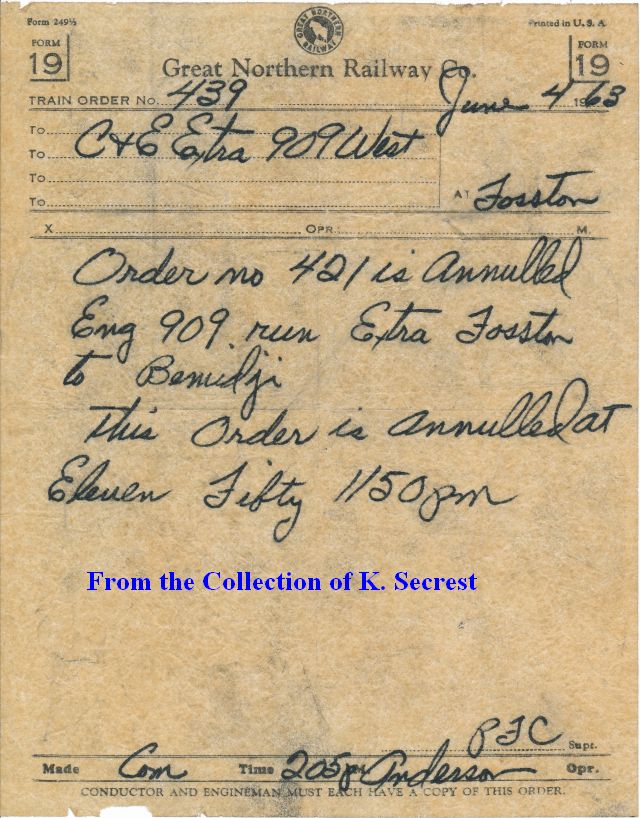 Form 249½
Printed in U. S. A
FORM
19
GREAT NORTHERN RAILWAY
FORM
19
Great Northern Railway Co.
TRAIN ORDER No. 439
June 4 1963
To
To C&E Extra 909 West
To
To
AT Fosston
X OPR. M.
Order no 421 is annulled
Eng 909 run Extra Fosston
to Bemidji
this Order is annulled at
Eleven Fifty 1150pm
From the Collection of K. Secrest
PFC Supt.
Made Com Time 205p M Anderson Opr.
CONDUCTOR AND ENGINEMAN MUST EACH HAVE A COPY OF THIS ORDER.